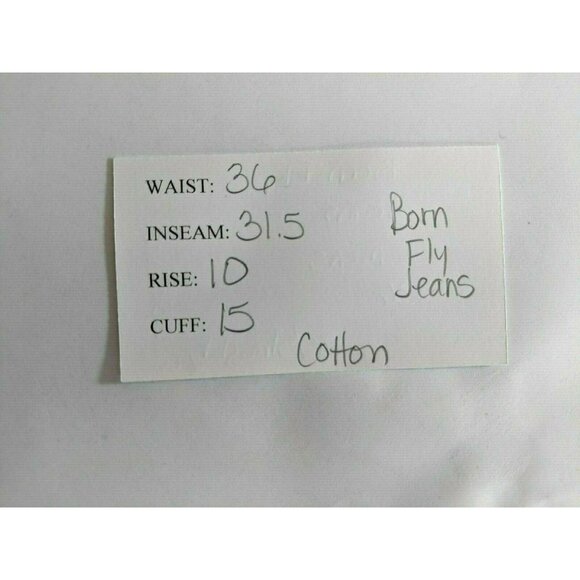 WAIST: 36
INSEAM: 31.5
RISE: 10
CUFF: 15
Born
Fly
Jeans
Cotton